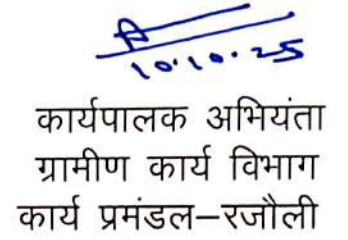 10.10.25
कार्यपालक अभियंता
ग्रामीण कार्य विभाग
कार्य प्रमंडल–रजौली